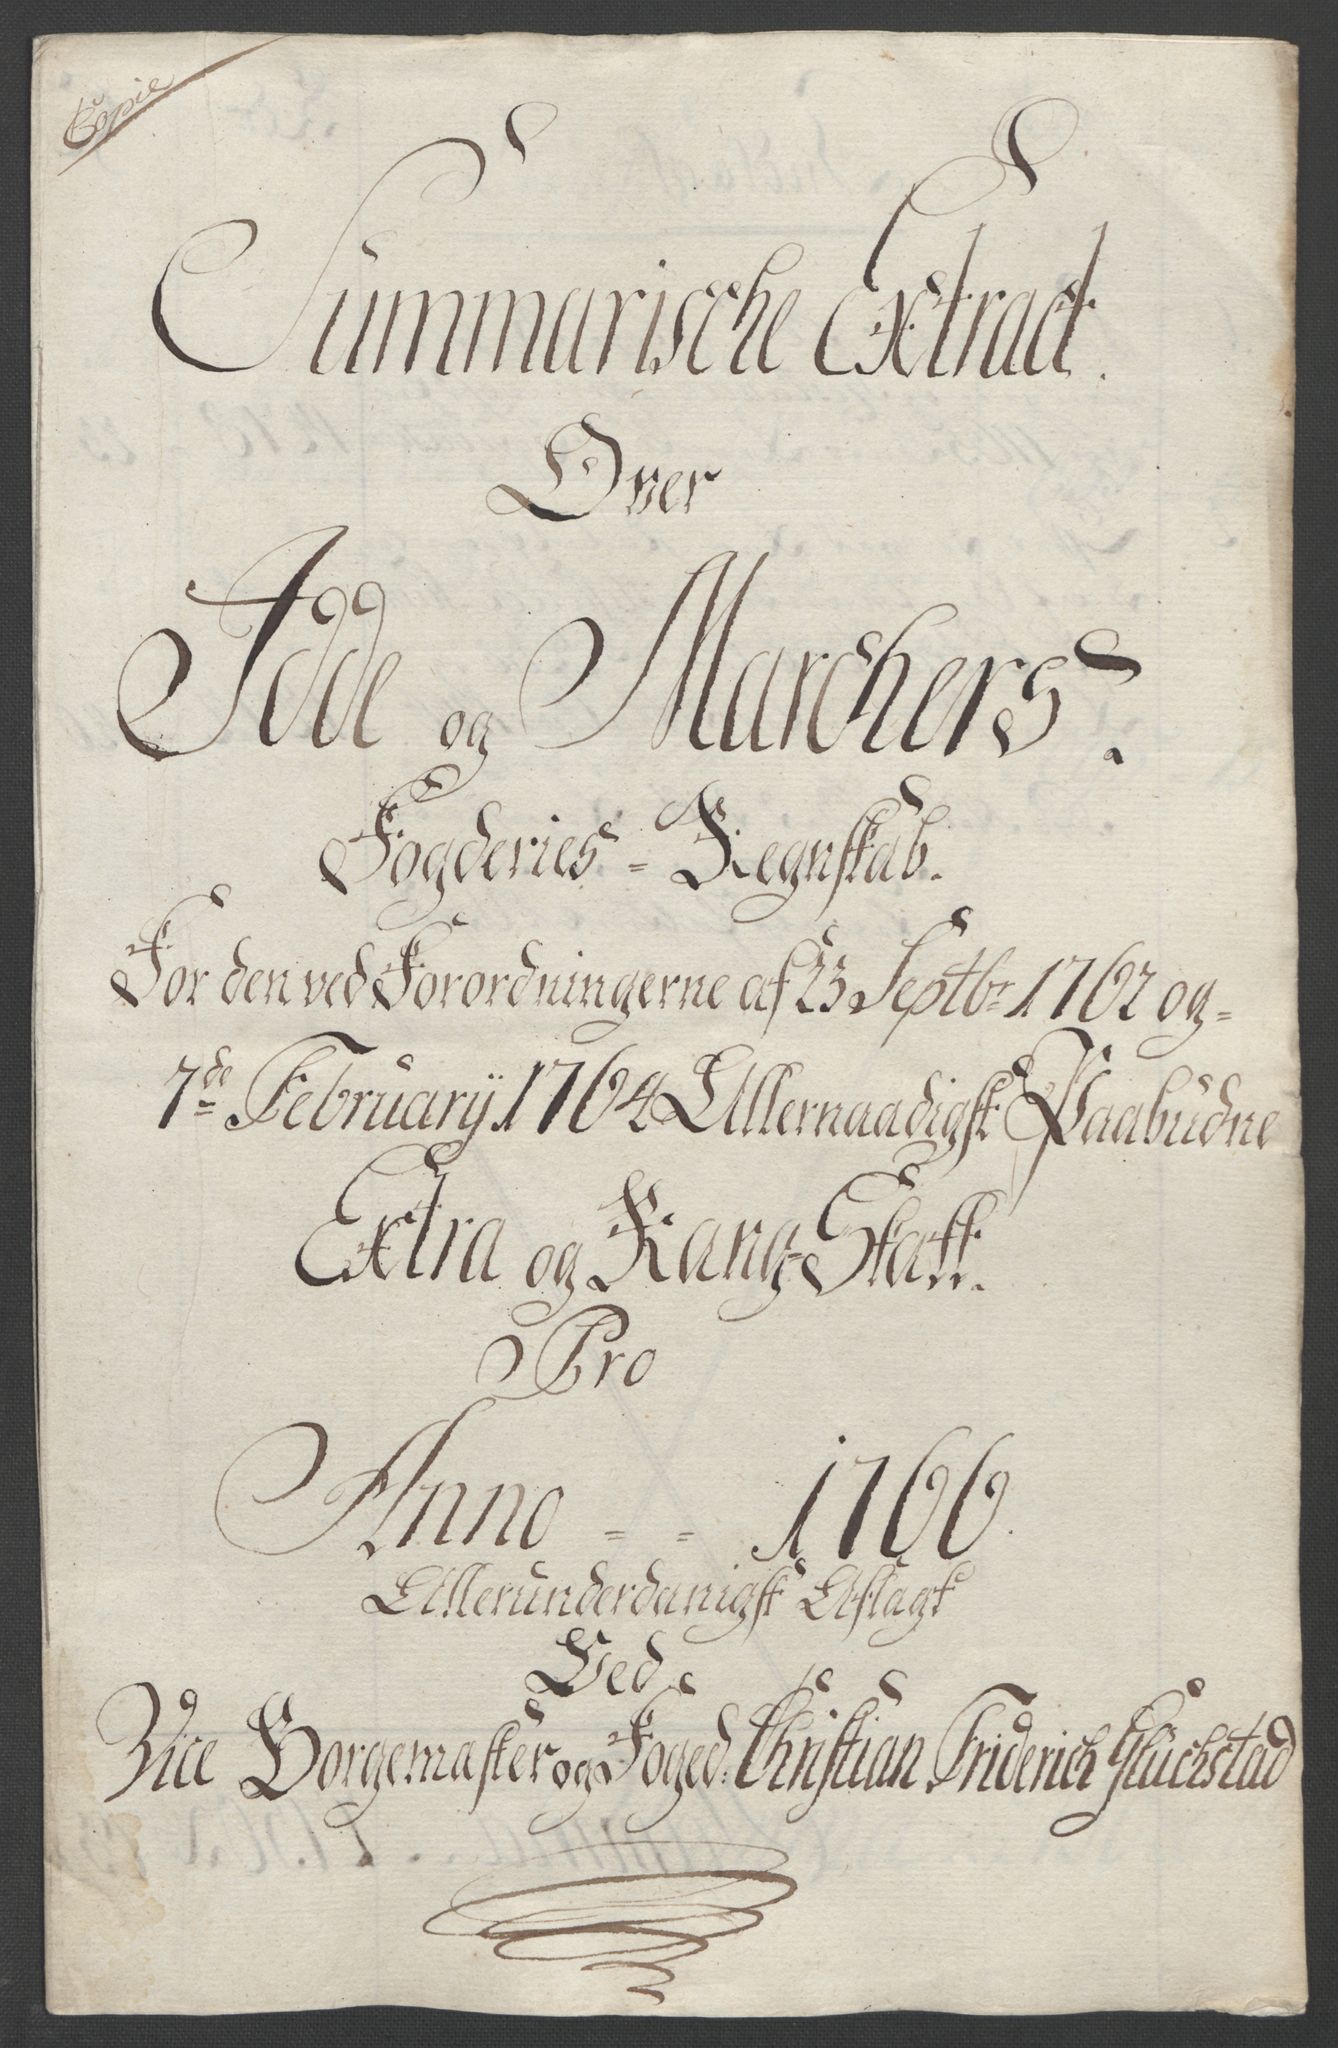 Copie
Summarische Extract.
Over
Idde og Marchers.
Fogderies = Regnskab.
For den ved Forordningerne af 23 Septbr 1762 og =
7de Februarÿ 1764 Allernaadigst Paabudne
Extra og Rang-Skatt.
Pro
Anno = = 1766.
Allerunderdanigst Aflagt
Ved
Vice Borgemaster og Foged: Christian Friderich Glückstad